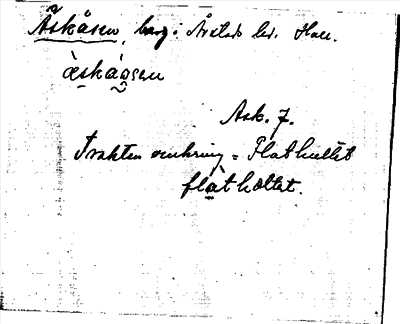 Åskåsen, berg i Årstads hd. Hall.
àskáosen
Ask. 7.
Trakten omkring = Flathultet
flàthöltet.